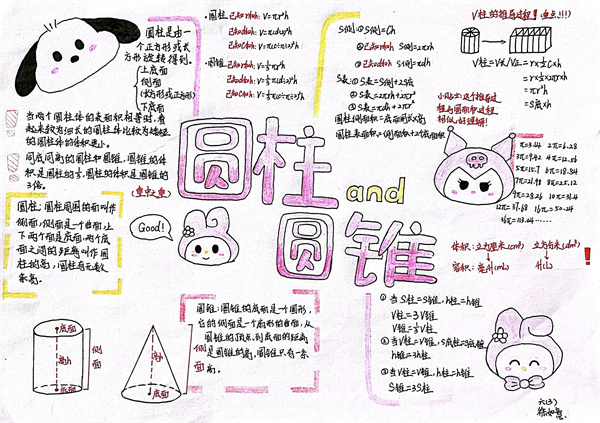 圆柱是由一
个正方形或长
方形旋转得到。
上底面
侧面
(长方形或正方形)
下底面
当两个圆柱体的表面积相等时,看
起来较为细长的圆柱体比较为矮胖
的圆柱体的体积更小。
同底同高的圆柱和圆锥,圆锥的体
积是圆柱的⅓,圆柱的体积是圆锥的
3倍。
(重中之重)
圆柱:圆柱周围的面叫作
侧面,侧面是一个曲面,上
下两个面是底面,两个底
面之间的距离叫作圆
柱的高,圆柱有无数
条高。
·圆柱
已知r和h: V=πr²h
已知d和h: V=π(d÷2)²h
已知C和h: V=π(C÷π÷2)²h
·圆锥
已知r和h: V=⅓πr²h
已知d和h: V=⅓π(d÷2)²h
已知C和h: V=⅓π(C÷π÷2)²h
S侧: ①S侧=Ch
②已知r和h S侧=2πrh
③已知d和h S侧=πdh
S表: ①S表=S侧+2S底
②S表=2πrh+2πr²
③S表=πdh+2πr²
圆柱侧面积=底面周长×高
圆柱表面积=侧面积+2个底面积
V柱的推导过程!(重点!!!)
V柱=V长 V长=πr×½C×h
=πr×½×2πr×h
=πr²h
=S底×h
小贴士:这个推导过
程与圆面积过程
相似,好理解!
π=3.14 2π=6.28
3π=9.42 4π=12.56
5π=15.7 6π=18.84
7π=21.98 8π=25.12
9π=28.26 10π=31.4
12π=37.68 16π=50.24
36π=113.04……
圆柱
and
圆锥
Good!
体积:立方厘米(cm³) 立方分米(dm³)
容积:毫升(mL) 升(L)
!
① 当S柱=S锥,h柱=h锥
V柱=3V锥
V锥=⅓V柱
② 当V柱=V锥,S底柱=S底锥
h锥=3h柱
③ 当V柱=V锥,h柱=h锥
S锥=3S柱
圆锥:圆锥的底面是一个圆形,
它的侧面是一个扇形的曲面,从
圆锥的顶点到底面的距离
是圆锥的高,圆锥只有一条
高。
底面
高h
侧面
底面
高h
侧面
底面
六(3)